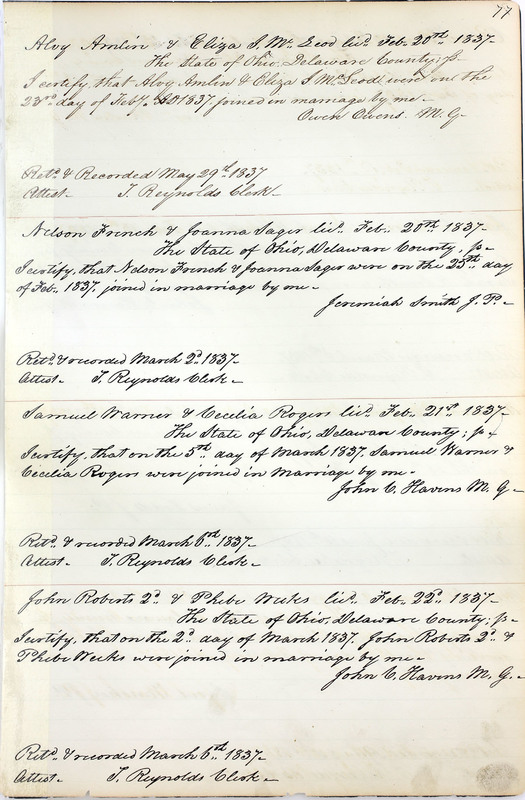 77
Alvy Amlin & Eliza S. Mc Leod licd. Feb. 20th 1837-
The State of Ohio, Delaware County; ss-
I certify, that Alvy Amlin & Eliza S McLeod were on the
23rd day of Feby. AD 1837 joined in marriage by me-
Owen Owens. M. G-
Retd. & Recorded May 29th 1837
Attest- T. Reynolds Clerk-
Nelson French & Joanna Sager licd. Feb. 20th 1837-
The State of Ohio, Delaware County, ss-
I certify, that Nelson French & Joanna Sager were on the 25th day
of Feb. 1837, joined in marriage by me-
Jeremiah Smith J. P.-
Retd. & recorded March 2d. 1837-
Attest- T. Reynolds Clerk-
Samuel Warner & Cecelia Rogers licd. Feb. 21st. 1837-
The State of Ohio, Delaware County; ss-
I certify, that on the 5th day of March 1837. Samuel Warner &
Cecelia Rogers were joined in Marriage by me-
John C. Havens M. G-
Retd. & recorded March 6th. 1837-
Attest- T. Reynolds Clerk-
John Roberts 2d. & Phebe Weeks licd. Feb. 22d. 1837-
The State of Ohio, Delaware County; ss-
I certify, that on the 2d. day of March 1837. John Roberts 2d. &
Phebe Weeks were joined in marriage by me-
John C. Havens M. G.-
Retd. & recorded March 6th. 1837-
Attest- T. Reynolds Clerk-